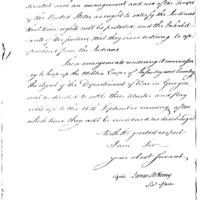 such an management and use of the troops
of the United States as ought to satisfy the Indians
that their rights will be protected and the Inhabit-
ants of the frontier that they have nothing to ap-
prehend from the Indians.
Such arrangements rendering it unnecessary
to keep up the militia Corps of Infantry and Cavalry
the Agent of the Department of War in Georgia
will be directed to settle their Muster and Pay
rolls up to the 15th September ensuing after
which time they will be considered as discharged.
With the greatest respect
I am Sir
your obedt servant
signed James McHenry
Secy of War